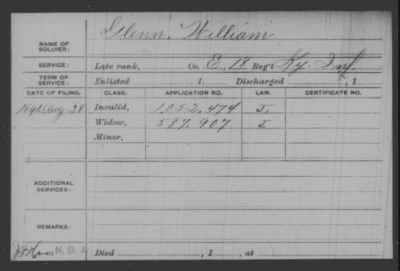 Glenn, William
NAME OF SOLDIER:
SERVICE: Late rank, Co. E, 18 Reg't Ky. Inf.
TERM OF SERVICE: Enlisted , 1 Discharged , 1
DATE OF FILING. CLASS. APPLICATION NO. LAW. CERTIFICATE NO.
Aug 28 Invalid, 1.052.474 J.
Widow, 587.907 J.
Minor,
ADDITIONAL SERVICES:
REMARKS:
Died , 1 , at